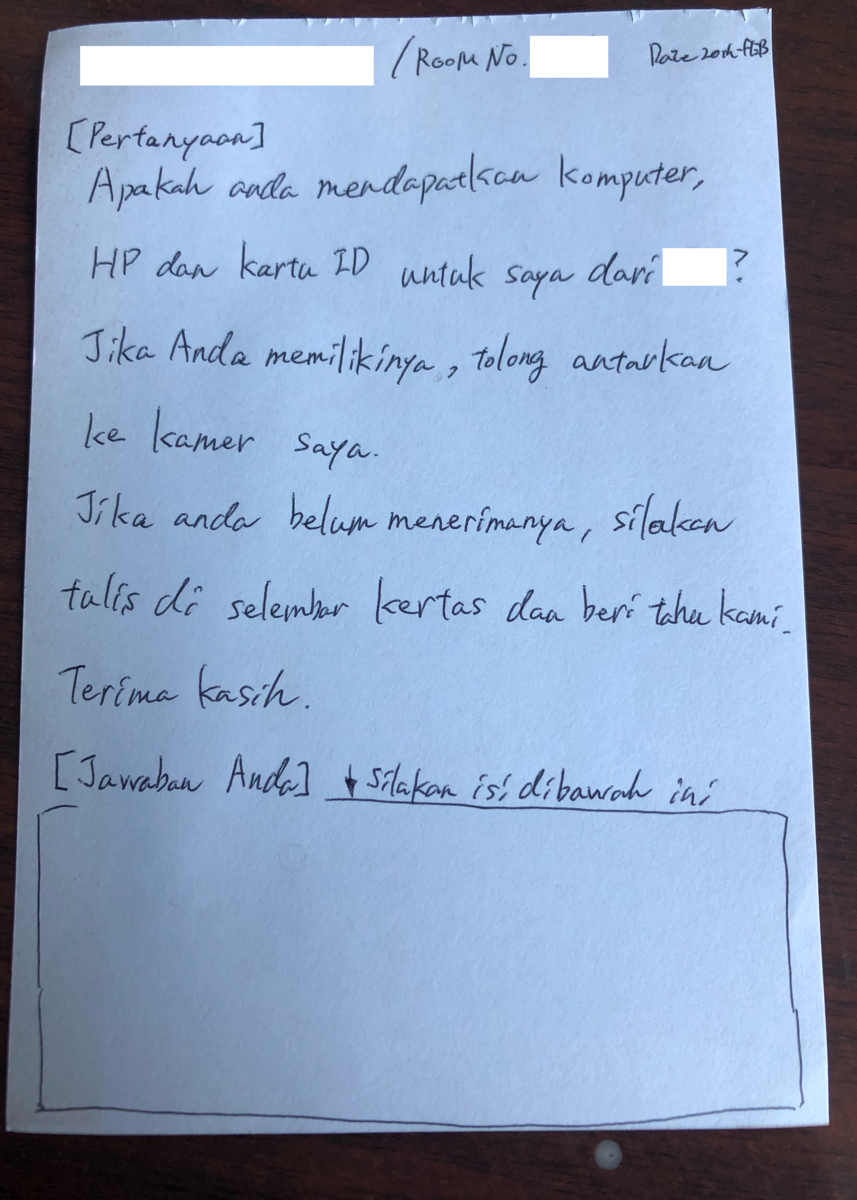 / Room No. Date 20th-FEB
[Pertanyaan]
Apakah anda mendapatkan komputer,
HP dan kartu ID untuk saya dari ?
Jika Anda memilikinya, tolong antarkan
ke kamer saya.
Jika anda belum menerimanya, silakan
tulis di selembar kertas dan beri tahu kami.
Terima kasih.
[Jawaban Anda] ↓ silakan isi dibawah ini